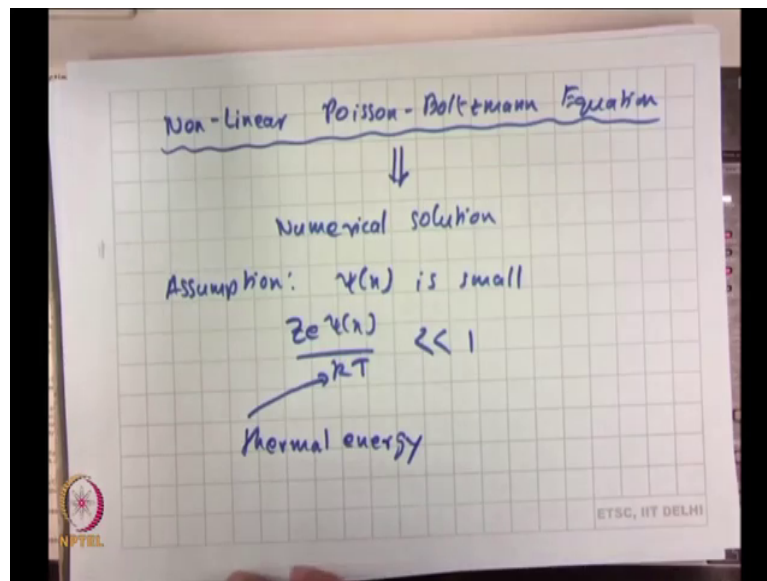 Non-Linear Poisson-Boltzmann Equation
⇓
Numerical solution
Assumption: ψ(x) is small
Zeψ(x)
kT
<< 1
Thermal energy
ETSC, IIT DELHI
NPTEL